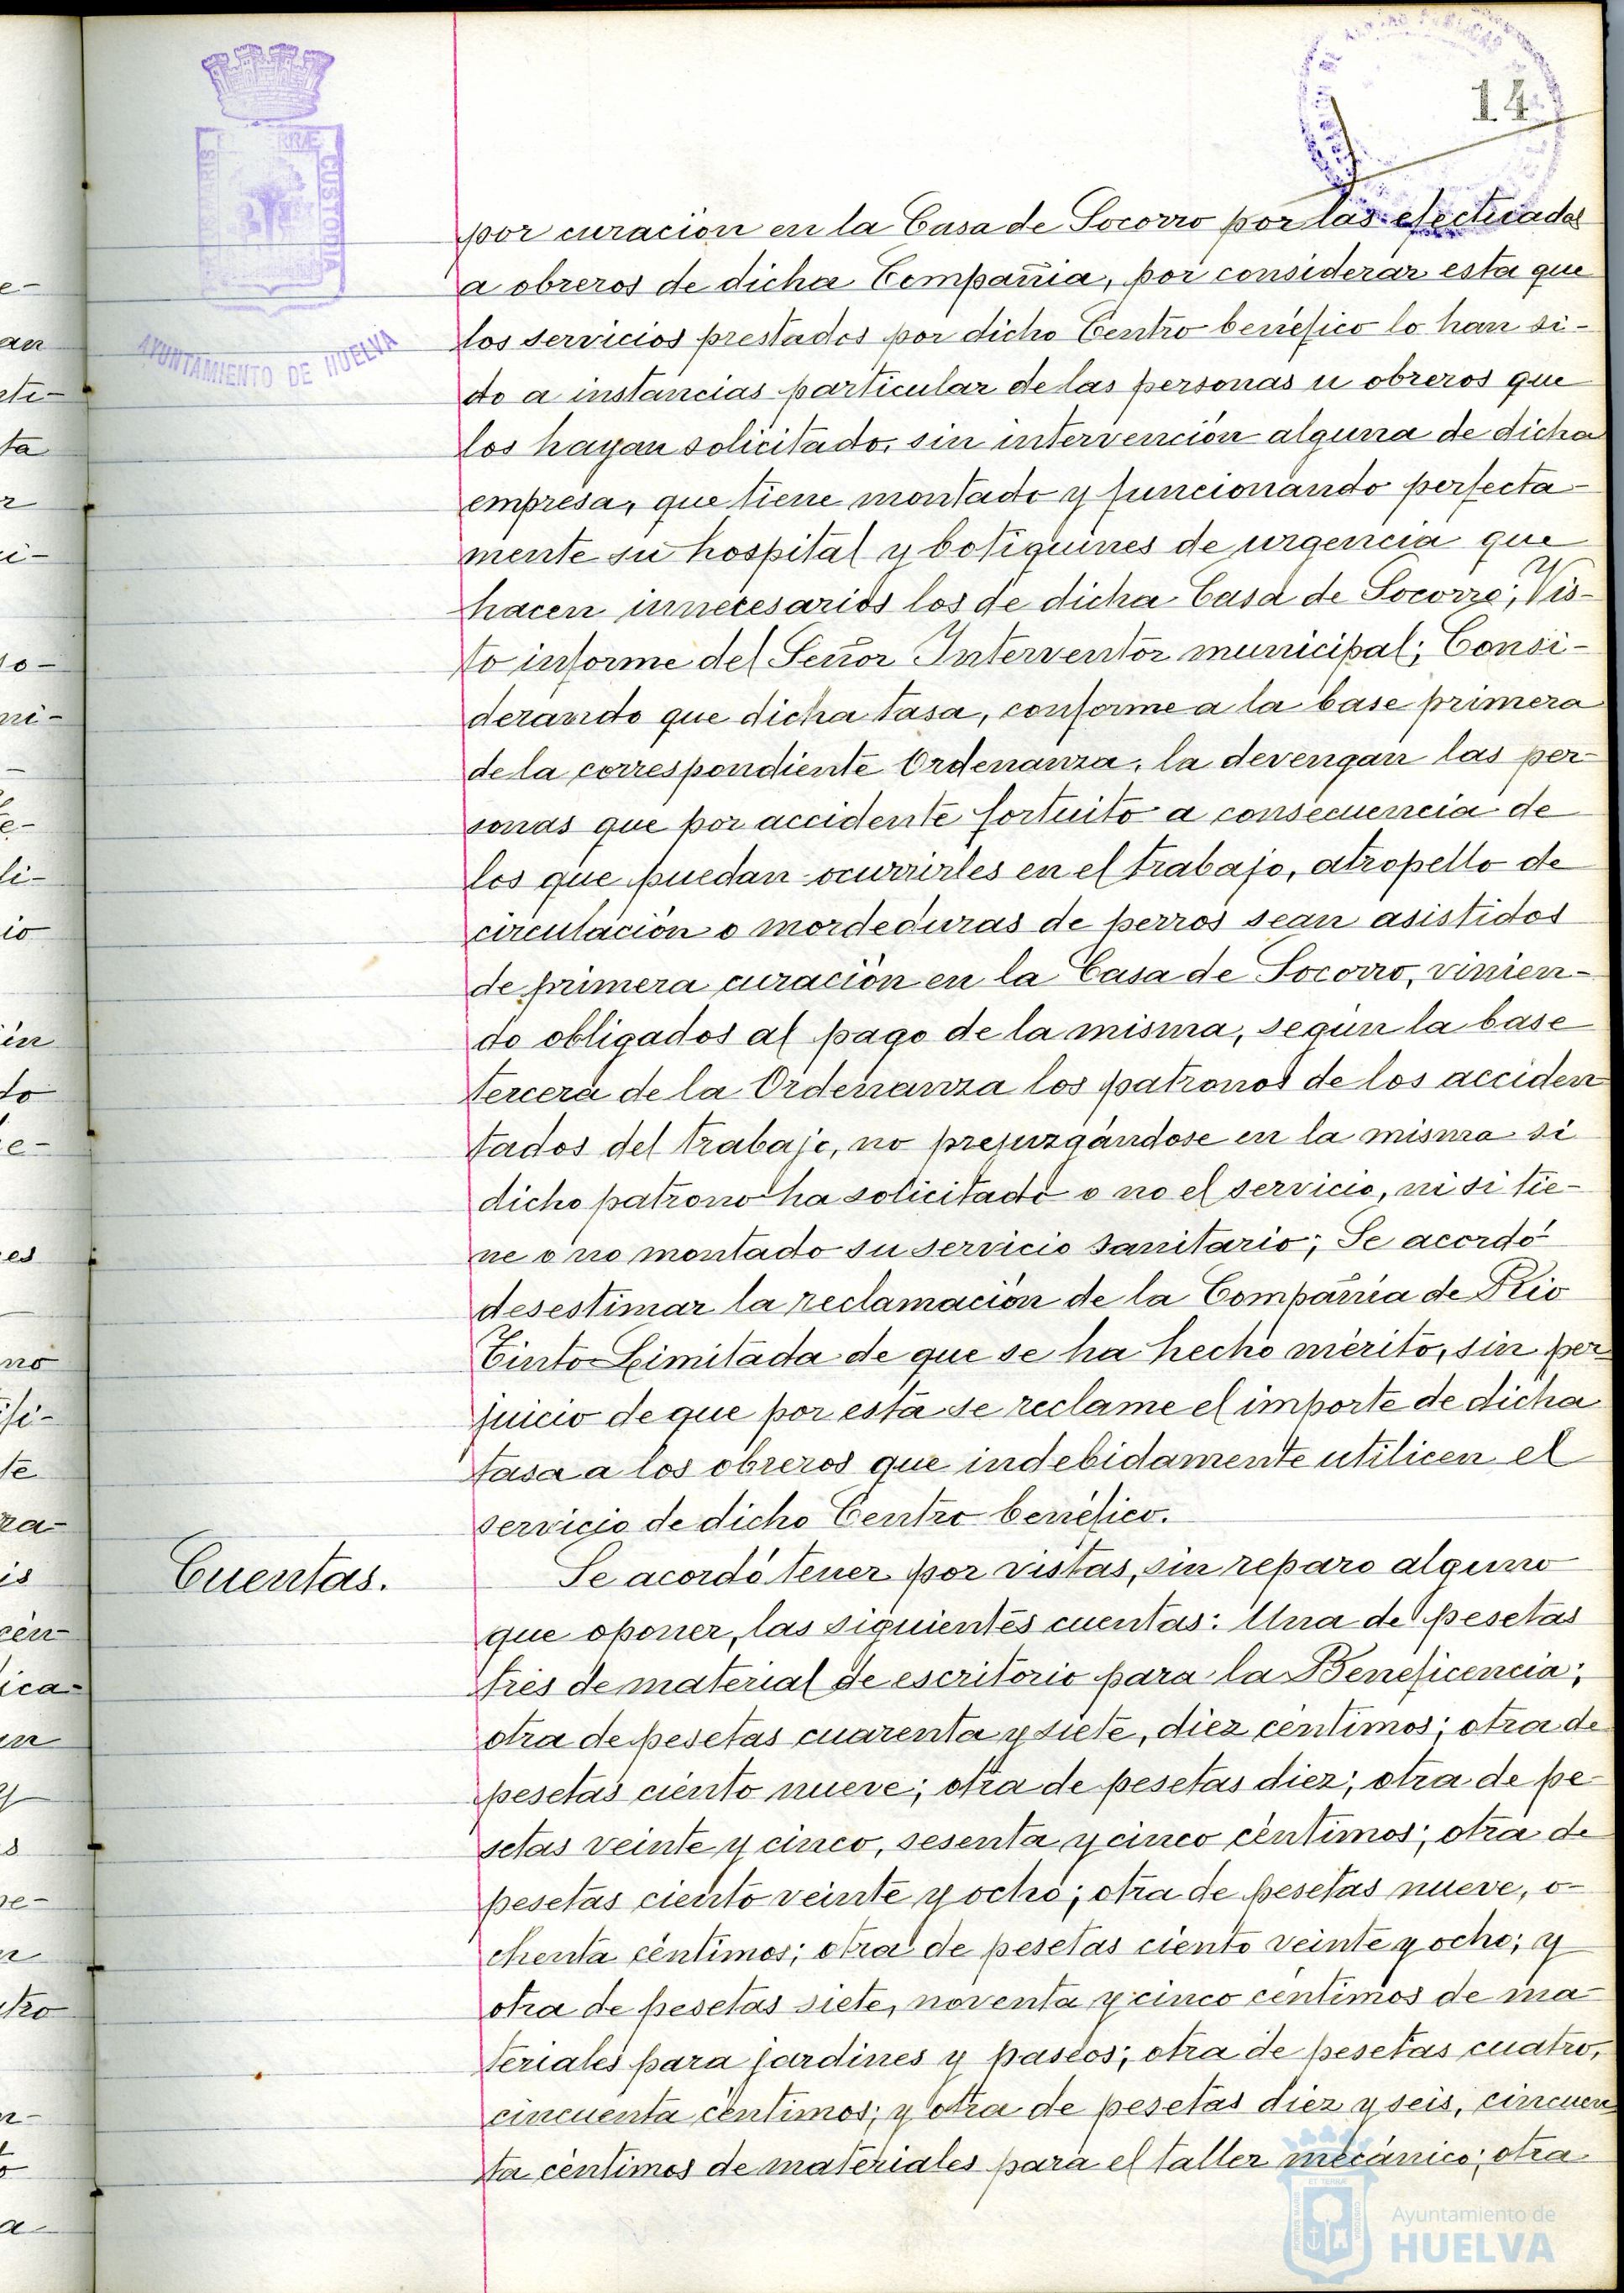 14
por curación en la Casa de Socorro por las efectuadas
a obreros de dicha Compañia, por considerar esta que
los servicios prestados por dicho Centro benéfico lo han si-
do a instancias particular de las personas u obreros que
los hayan solicitado, sin intervención alguna de dicha
empresa, que tiene montado y funcionando perfecta-
mente su hospital y botiquines de urgencia que
hacen innecesarios los de dicha Casa de Socorro; Vis-
to informe del Señor Interventor municipal; Consi-
derando que dicha tasa, conforme a la base primera
de la correspondiente Ordenanza, la devengan las per-
sonas que por accidente fortuito a consecuencia de
los que puedan ocurrirles en el trabajo, atropello de
circulación o mordeduras de perros sean asistidos
de primera curación en la Casa de Socorro, vinien-
do obligados al pago de la misma, según la base
tercera de la Ordenanza los patronos de los acciden
tados del trabajo, no prejuzgándose en la misma si
dicho patrono ha solicitado o no el servicio, ni si tie-
ne o no montado su servicio sanitario; Se acordó
desestimar la reclamación de la Compañía de Rio
Tinto Limitada de que se ha hecho mérito, sin per
juicio de que por esta se reclame el importe de dicha
tasa a los obreros que indebidamente utilicen el
servicio de dicho Centro benéfico.
Cuentas.
Se acordó tener por vistas, sin reparo alguno
que oponer, las siguientes cuentas: Una de pesetas
tres de material de escritorio para la Beneficencia;
otra de pesetas cuarenta y siete, diez céntimos; otra de
pesetas ciento nueve; otra de pesetas diez; otra de pe-
setas veinte y cinco, sesenta y cinco céntimos; otra de
pesetas ciento veinte y ocho; otra de pesetas nueve, o-
chenta céntimos; otra de pesetas ciento veinte y ocho; y
otra de pesetas siete, noventa y cinco céntimos de ma-
teriales para jardines y paseos; otra de pesetas cuatro,
cincuenta céntimos; y otra de pesetas diez y seis, cincuen
ta céntimos de materiales para el taller mecánico; otra
CUSTODIA
AYUNTAMIENTO DE HUELVA
Ayuntamiento de
HUELVA